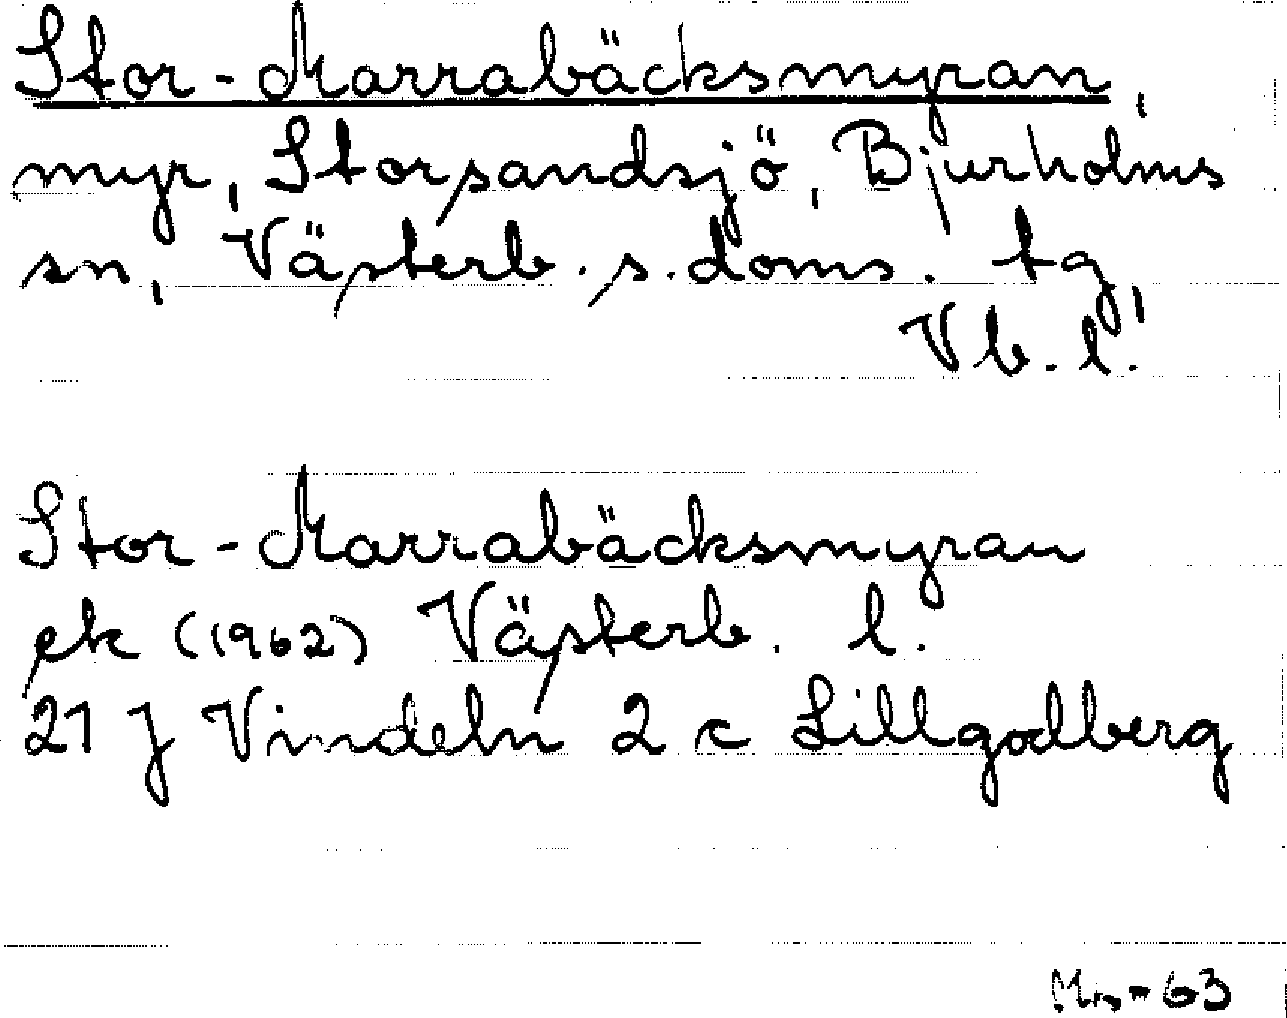 Stor-Marrabäcksmyran,
myr, Storsandsjö, Bjurholms
sn, Västerb. s. doms. tg,
Vb. l.
Stor-Marrabäcksmyran
ek (1962) Västerb. l.
21 J Vindeln 2 c Lillgodberg
-63